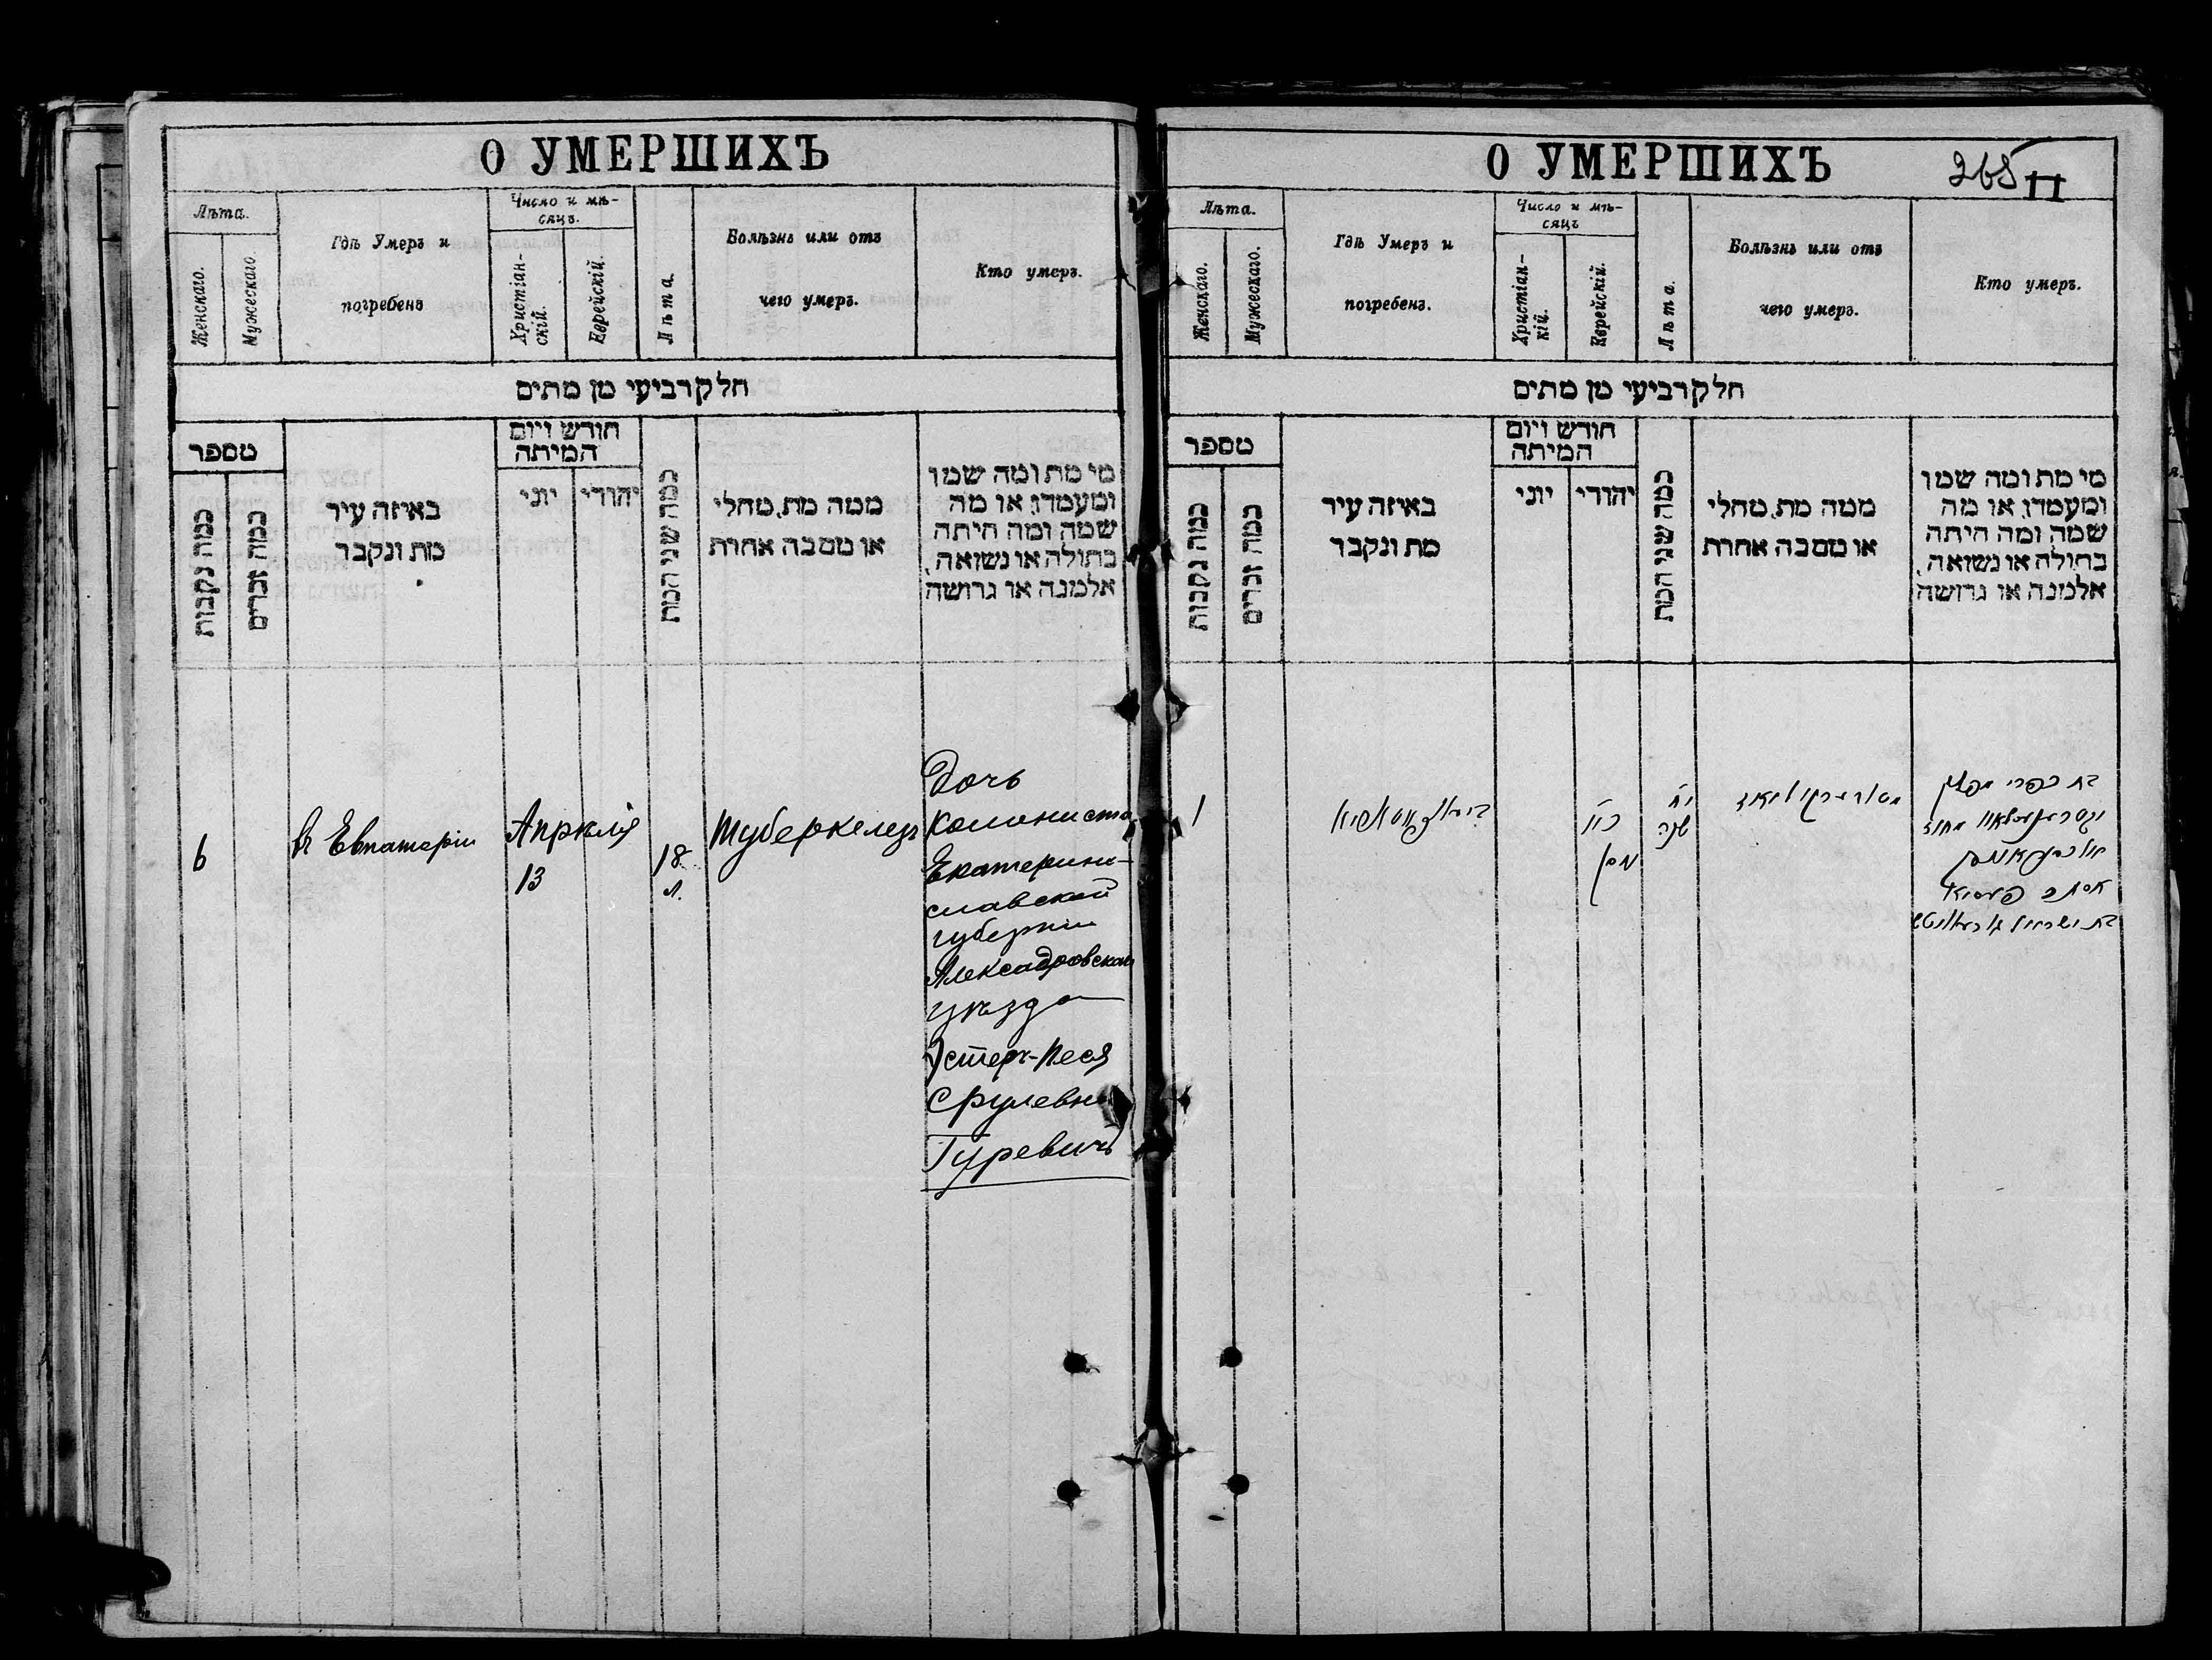 О УМЕРШИХЪ
Лѣта.
Женскаго.
Мужескаго.
Гдѣ Умеръ и
погребенъ
Число и мѣ-
сяцъ.
Христіан-
скій.
Еврейскій.
Лѣта.
Болѣзнь или отъ
чего умеръ.
Кто умеръ.
חלק רביעי מן מתים
מספר
כמה נקבות
כמה זכרים
באיזה עיר
מת ונקבר
חודש ויום
המיתה
יוני
יהודי
כמה שני המת
ממה מת, מחלי
או מסבה אחרת
מי מת ומה שמו
ומעמדו, או מה
שמה ומה היתה
בתולה או נשואה,
אלמנה או גרושה
6
въ Евпаторіи
Апрѣля
13
18
л.
Туберкелезъ
Дочь
колониста
Екатерино-
славской
губерніи
Алексадровскаго
уѣзда
Эстеръ-Песя
Срулевна
Гуревичъ
О УМЕРШИХЪ
Лѣта.
Женскаго.
Мужескаго.
Гдѣ Умеръ и
погребенъ.
Число и мѣ-
сяцъ
Христіан-
кій.
Еврейскій.
Лѣта.
Болѣзнь или отъ
чего умеръ.
Кто умеръ.
חלק רביעי מן מתים
מספר
כמה נקבות
כמה זכרים
באיזה עיר
מת ונקבר
חודש ויום
המיתה
יוני
יהודי
כמה שני המת
ממה מת, מחלי
או מסבה אחרת
מי מת ומה שמו
ומעמדו, או מה
שמה ומה היתה
בתולה או נשואה,
אלמנה או גרושה
ניסן
י״ח
שנה
בת
אסתר פעסיא
בת ישראל גוראוויטש